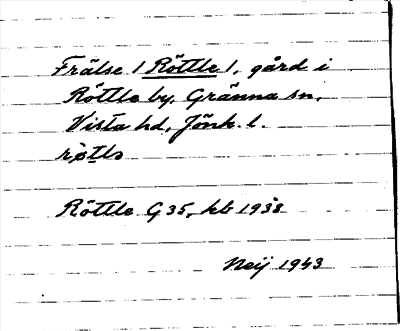 Frälse / Röttle /, gård i
Röttle by, Gränna sn,
Vista hd, Jönk. l.
Röttle G 35, kb 1938
Neij 1943